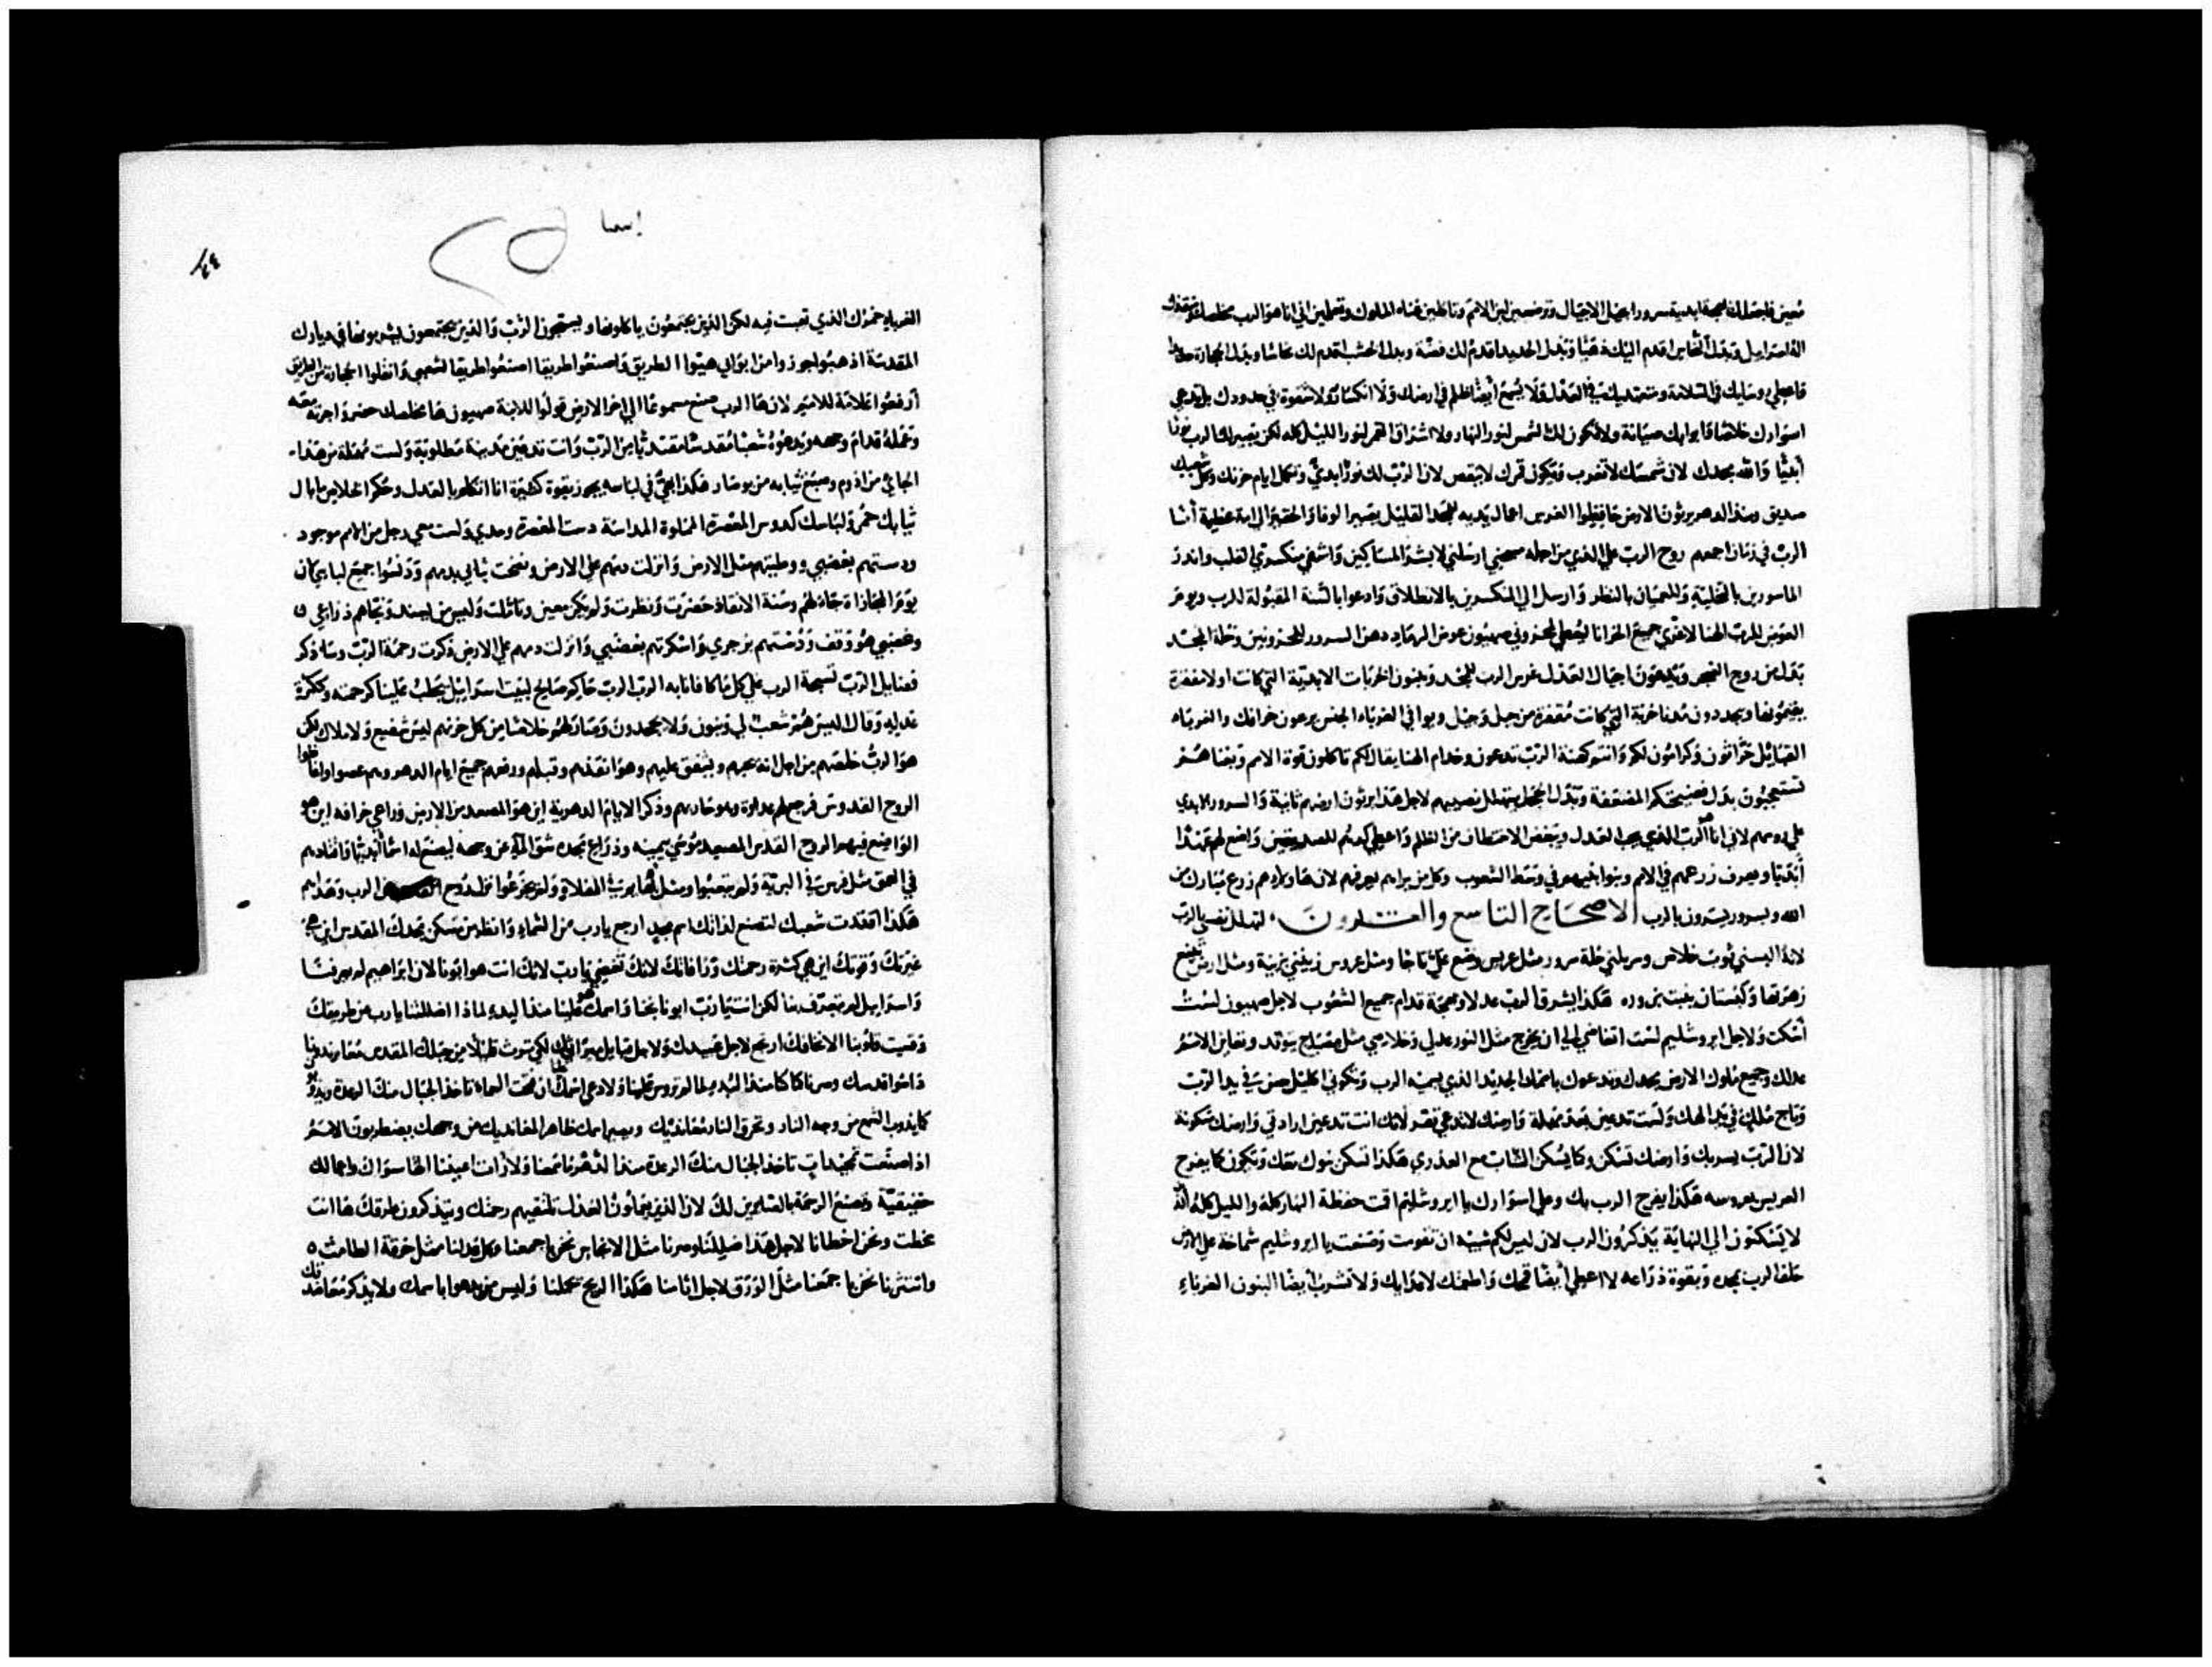 معين فاجعلك بهجة ابدية سرورا بجيل الاجيال وترضعين لبن الامم وتاكلين غناء الملوك وتعلمين اني انا هو الرب مخلصك ومنقذك
اله اسراييل وبدل النحاس اقدم اليك ذهبا وبدل الحديد اقدم لك فضة وبدل الخشب اقدم لك نحاسا وبدل الحجارة حديدا
فاجعل روسايك في السلامة ومتعهديك في العدل ولا يسمع ايضا ظلم في ارضك ولا انكسار ولا شقوة في حدودك بل تدعي
اسوارك خلاصا وابوابك صيانة ولا تكون لك الشمس لنور النهار ولا اشراق القمر لنور الليل كله لكن يصير لك الرب نورا
ابديا والله مجدك لان شمسك لا تغرب وقمرك لا ينقص لان الرب لك نور ابدي وتكمل ايام حزنك وكل شعبك
صديق ومنذ الدهر يرثون الارض حافظوا الغرس اعمال يديه للمجد القليل يصير الوفا والحقير الي امة عظيمة انا
الرب في زمان اجمعهم روح الرب علي الذي من اجله مسحني ارسلني لابشر المساكين واشفي منكسري القلب وانذر
الماسورين بالتخلية وللعميان بالنظر وارسل الي المنكسرين بالانطلاق وادعوا بالسنة المقبولة للرب ويوم
العوض للرب الهنا لاعزي جميع الحزانا ليعطي لمحزوني صهيون عوض الرماد دهن السرور للمحزونين وحلة المجد
بدل من روح الضجر وتدعون اجيال العدل غرس الرب للمجد ويبنون الخربات الابدية التي كانت اولا مقفرة
يقيمونها ويجددون مدنا خربة التي كانت مقفرة من جيل وجيل وياتوا الغرباء الجنس يرعون خرافك والغرباء
القبايل حراثون وكرامون لكم وانتم كهنة الرب تدعون وخدام الهنا يقال لكم تاكلون قوة الامم وبغناهم
تستعجبون بدل فضيحتكم المضعفة وبدل الخجل يتهلل نصيبهم لاجل هذا يرثون ارضهم ثانية والسرور الابدي
علي روسهم لاني انا هو الرب الذي يحب العدل ويبغض الاختطاف من الظلم واعطي كدهم للصديقين واضع لهم عهدا
ابديا ويعرف زرعهم في الامم وبنوا بنيهم في وسط الشعوب وكل من يراهم يعرفهم لان هاولاهم زرع مبارك من
الله وبسرور يسرون بالرب الاصحاح التاسع والعشرون لتهلل نفسي بالرب
لانه البسني ثوب خلاص وسربلني حلة سرور مثل عريس وضع علي تاجا ومثل عروس زينني بزينة ومثل ارض تصنع
زهرتها وكبستان ينبت بزوره هكذا يشرق الرب عدلا وبهجة قدام جميع الشعوب لاجل صهيون لست
اسكت ولاجل ايروشليم لست اتغاضي الي ان يخرج مثل النور عدلي وخلاصي مثل مصباح يتوقد وتعاين الامم
عدلك وجميع ملوك الارض مجدك وتدعون باسمك الجديد الذي يسميه الرب وتكوني اكليل حسن في يد الرب
وتاج ملك في يد الهك ولست تدعين بعد مهملة وارضك لا تدعي قفر لانك انت تدعين ارادتي وارضك مسكونة
لان الرب يسر بك وارضك تسكن وكما يسكن الشاب مع العذري هكذا تسكن بنوك معك وتكون كما يفرح
العريس بعروسه هكذا يفرح الرب بك وعلي اسوارك يا ايروشليم اقمت حفظة النهار كله والليل كله الذين
لا يسكتون الي النهاية يذكرون الرب لان ليس لكم شبيه ان تقومت وصنعت يا ايروشليم شماخة علي الارض
حلف الرب بمجده وبقوة ذراعه لا اعطي ايضا قمحك واطعمتك لاعدايك ولا تشرب ايضا البنون الغرباء
إسعيا
الغرباء خمرك الذي تعبت فيه لكن الذين يجمعون ياكلونها ويسبحون الرب والذين يجتمعون يشربونها في ديارك
المقدسة اذهبوا جوزوا من ابوابي هيوا الطريق واصنعوا طريقا اصنعوا طريقا لشعبي وانقلوا الحجارة من الطريق
ارفعوا علامة للامم لان ها الرب صنع مسموعا الي اخر الارض قولوا للابنة صهيون ها مخلصك حضر واجرته معه
وعمله قدام وجهه ويدعوه شعبا مقدسا مفتديا من الرب وانت تدعين مدينة مطلوبة ولست مهملة من هذا
الجائي من ادوم وصبغ ثيابه من بوصار هكذا بهي في لباسه يجوز بقوة كثيرة انا اتكلم بالعدل وحكم الخلاص ما بال
ثيابك حمر ولباسك كدوس المعصرة المملوة المداسة دست المعصرة وحدي وليس معي رجل من الامم موجود
ودستهم بغضبي ووطيتهم مثل الارض وانزلت دمهم علي الارض ونضحت ثيابي بدمهم ودنسوا جميع لباسي لان
يوم المجازاة جاء لهم وسنة الانقاذ حضرت ونظرت ولم يكن معين وتاملت وليس من يسند ونجاهم ذراعي
وغضبي هو وقف ودستهم بزجري واسكرتهم بغضبي وانزلت دمهم علي الارض ذكرت رحمة الرب وساذكر
فضايل الرب تسبحة الرب علي كل ما كافانا به الرب الرب حاكم صالح لبيت اسراييل يجلب علينا كرحمته وككثرة
عدله وقال اليس هم شعب لي وبنون ولا يجحدون وصار لهم خلاصا من كل حزنهم ليس شفيع ولا ملاك لكن
هو الرب خلصهم من اجل انه يحبهم ويشفق عليهم وهو انقذهم وقبلهم ورفعهم جميع ايام الدهر وهم عصوا واغاظوا
الروح القدوس فرجع لهم عداوة وهو حاربهم وذكر الايام الدهرية اين هو المصعد من الارض راعي خرافه اين هو
الواضع فيهم الروح القدس المصعد موسي بيمينه وذراع مجده شق المآء عن وجهه ليصنع له اسما ابديا واقتادهم
في العمق مثل فرس في البرية ولم يتعبوا ومثل بهايم في الفلاة ولم يجزعوا نزل روح من الرب وهداهم
هكذا اقتدت شعبك لتصنع لذاتك اسم مجد ارجع يارب من السماء وانظر من مسكن مجدك المقدس اين هي
غيرتك وقوتك اين هي كثرة رحمتك ورافاتك لانك تغضي يا رب لانك انت هو ابونا لان ابراهيم لم يعرفنا
واسراييل لم يتعرف بنا لكن انت يارب ابونا نجنا واسمك هو علينا منذ البدء لماذا اضللتنا يارب من طريقك
وقسيت قلوبنا الا نخافك ارجع لاجل عبيدك ولاجل قبايل ميراثك لكي نرث قليلا من جبلك المقدس معاندونا
داسوا قدسك وصرنا كما كنا منذ البدء لما لم تروس علينا ولا دعي اسمك علينا ان فتحت السماء تاخذ الجبال منك الرعدة ويذوبوا
كما يذوب الشمع من وجه النار وتحرق النار معانديك ويصير اسمك ظاهر المعانديك من وجهك يضطربون الامم
اذا صنعت تمجيدات تاخذ الجبال منك الرعدة منذ الدهر ما سمعنا ولا رات اعيننا الها سواك واعمالك
حقيقية وتصنع الرحمة بالصابرين لك لان الذين يعملون العدل تلتقيهم رحمتك ويتذكرون طرقك ها انت
سخطت ونحن اخطانا لاجل هذا ضللنا وصرنا مثل الانجاس نحن باجمعنا وكل عدلنا مثل خرقة الطامث
وانتثرنا نحن با جمعنا مثل الورق لاجل اثامنا هكذا الريح تحملنا وليس من يدعوا باسمك ولا يذكر معاضدتك